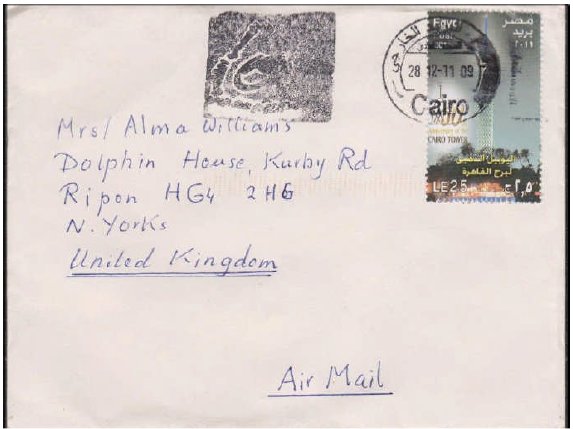 Egypt
Post
مصر
بريد
٢٠١١
28 12-11 09
Cairo
CAIRO TOWER
اليوبيل الذهبى
لبرج القاهرة
LE 2.5
٢,٥ ج
Mrs/ Alma Williams
Dolphin House, Kurby Rd
Ripon HG4 2HG
N. Yorks
United Kingdom
Air Mail